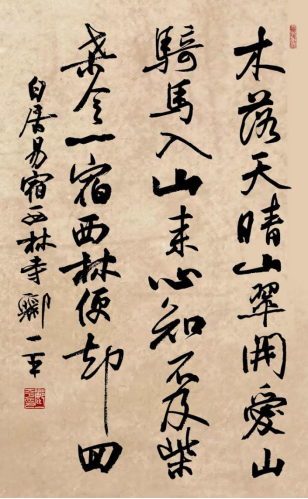 木落天晴山翠開愛山
騎馬入山来心知不及柴
桒令一宿西林便却回
白居易宿西林寺 酈一平